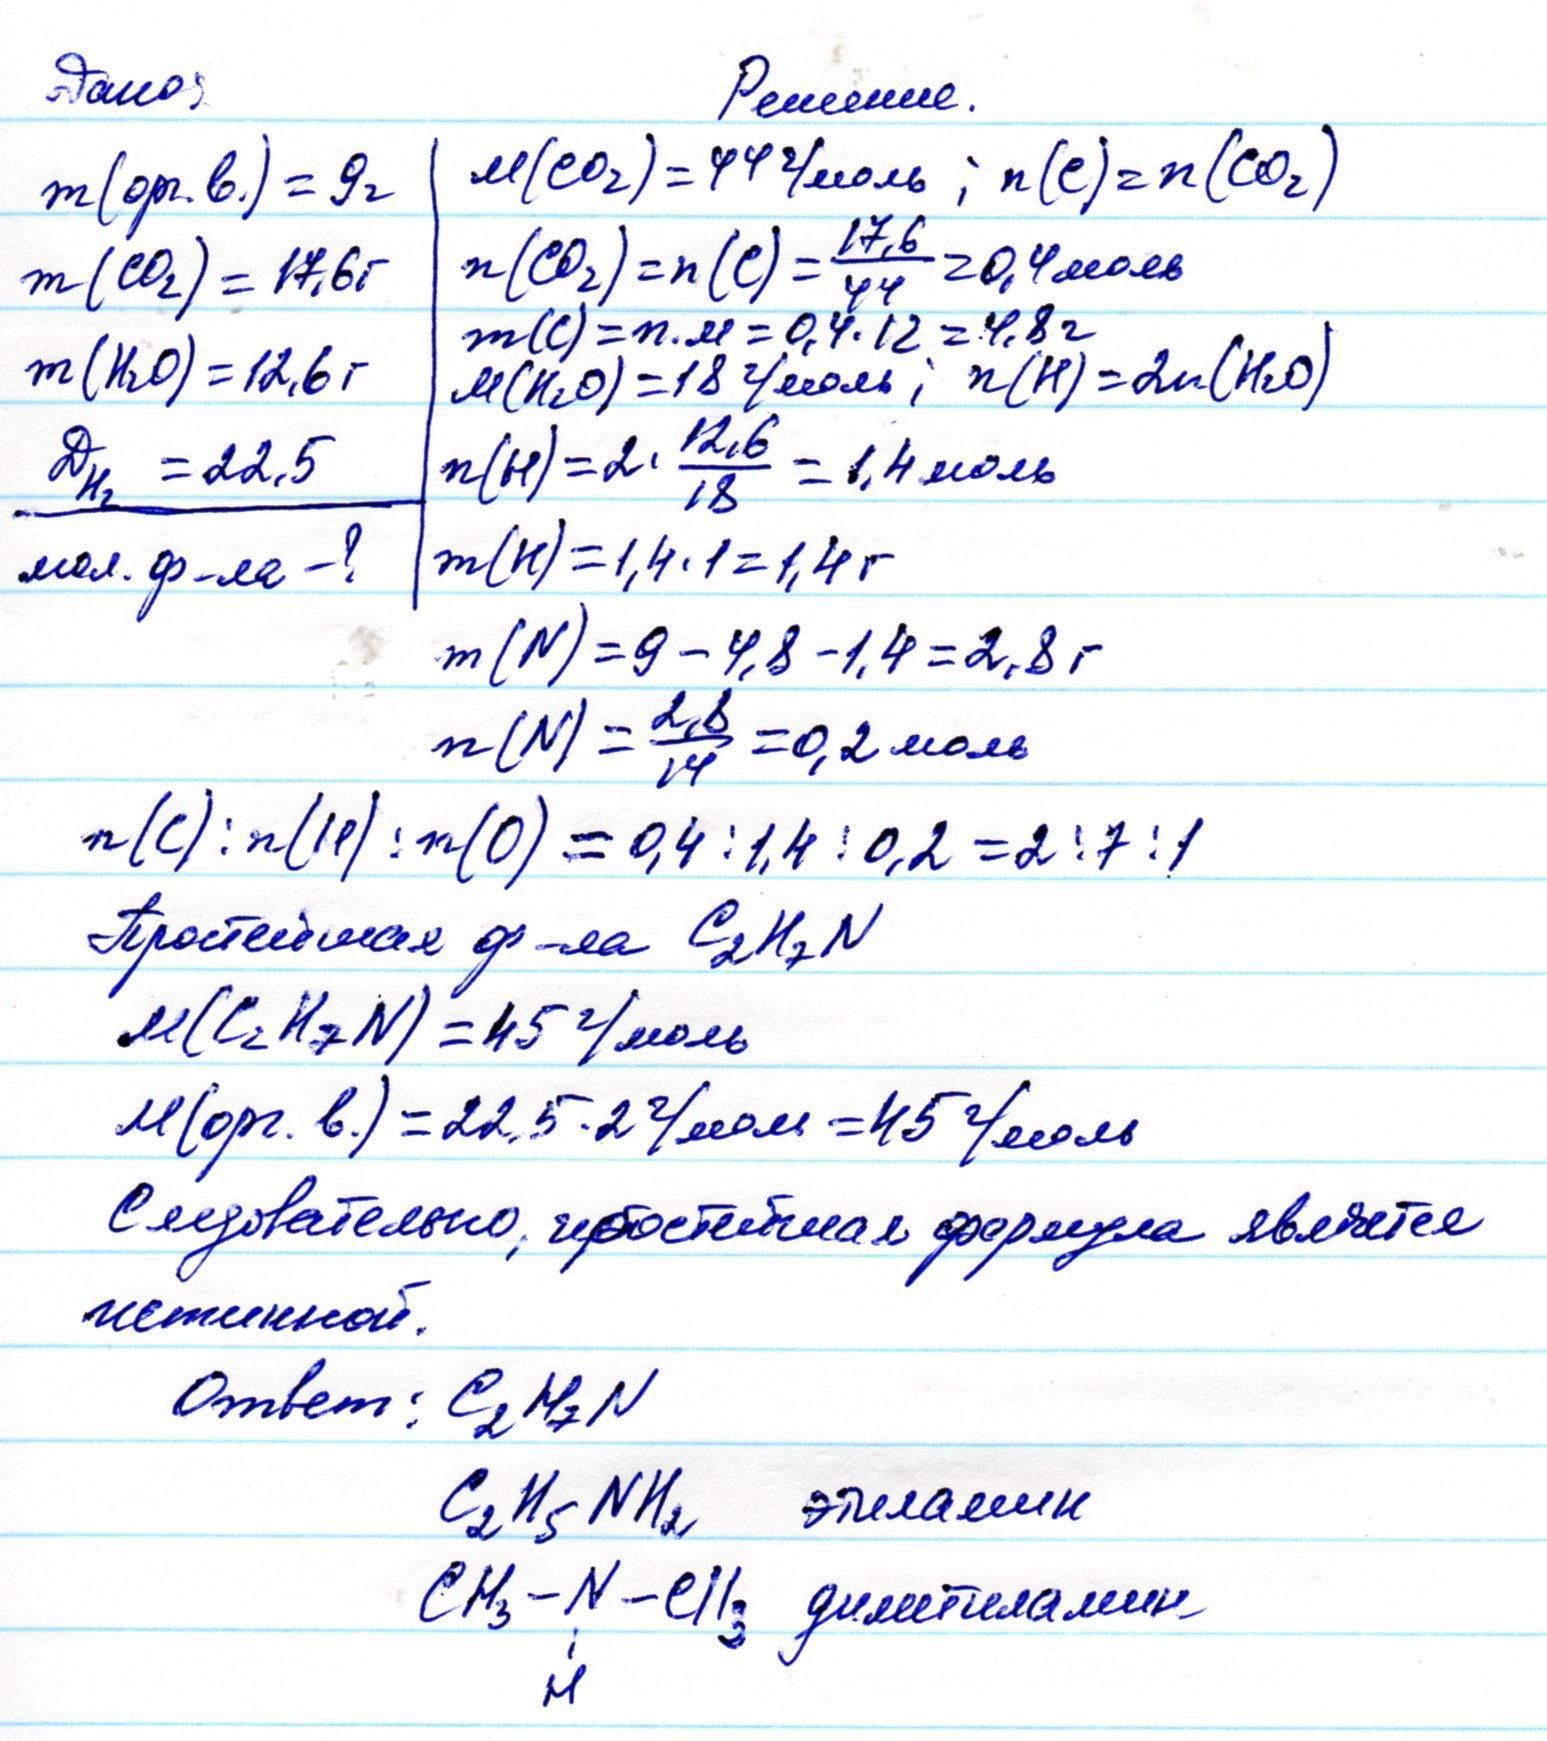 Дано:
Решение.
m(орг.в.) = 9г
m(CO₂) = 17,6г
m(H₂O) = 12,6г
D_H₂ = 22,5
мол. ф-ла - ?
M(CO₂) = 44 г/моль ; n(C) = n(CO₂)
n(CO₂) = n(C) = 17,6/44 = 0,4 моль
m(C) = n·M = 0,4·12 = 4,8г
M(H₂O) = 18 г/моль ; n(H) = 2n(H₂O)
n(H) = 2· 12,6/18 = 1,4 моль
m(H) = 1,4·1 = 1,4г
m(N) = 9 - 4,8 - 1,4 = 2,8г
n(N) = 2,8/14 = 0,2 моль
n(C) : n(H) : n(O) = 0,4 : 1,4 : 0,2 = 2 : 7 : 1
Простейшая ф-ла C₂H₇N
M(C₂H₇N) = 45 г/моль
M(орг. в.) = 22,5·2 г/моль = 45 г/моль
Следовательно, простейшая формула является
истинной.
Ответ: C₂H₇N
C₂H₅NH₂ этиламин
CH₃ - N - CH₃ диметиламин
H